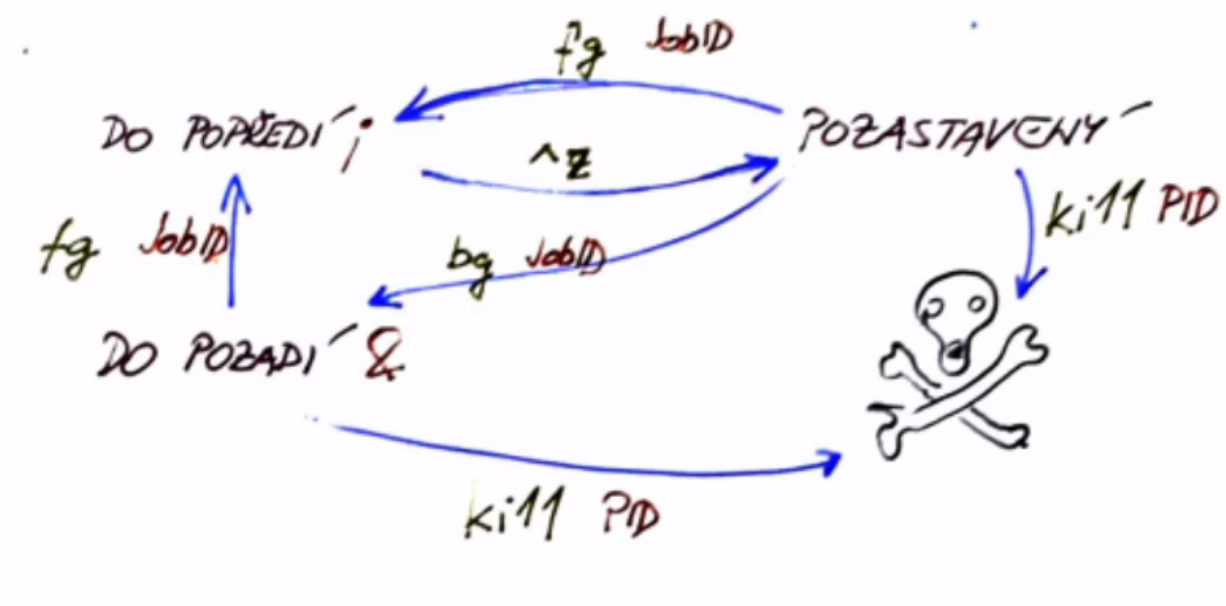 fg JobID
DO POPŘEDÍ ;
^Z
POZASTAVENÝ
kill PID
fg JobID
bg JobID
DO POZADÍ &
kill PID